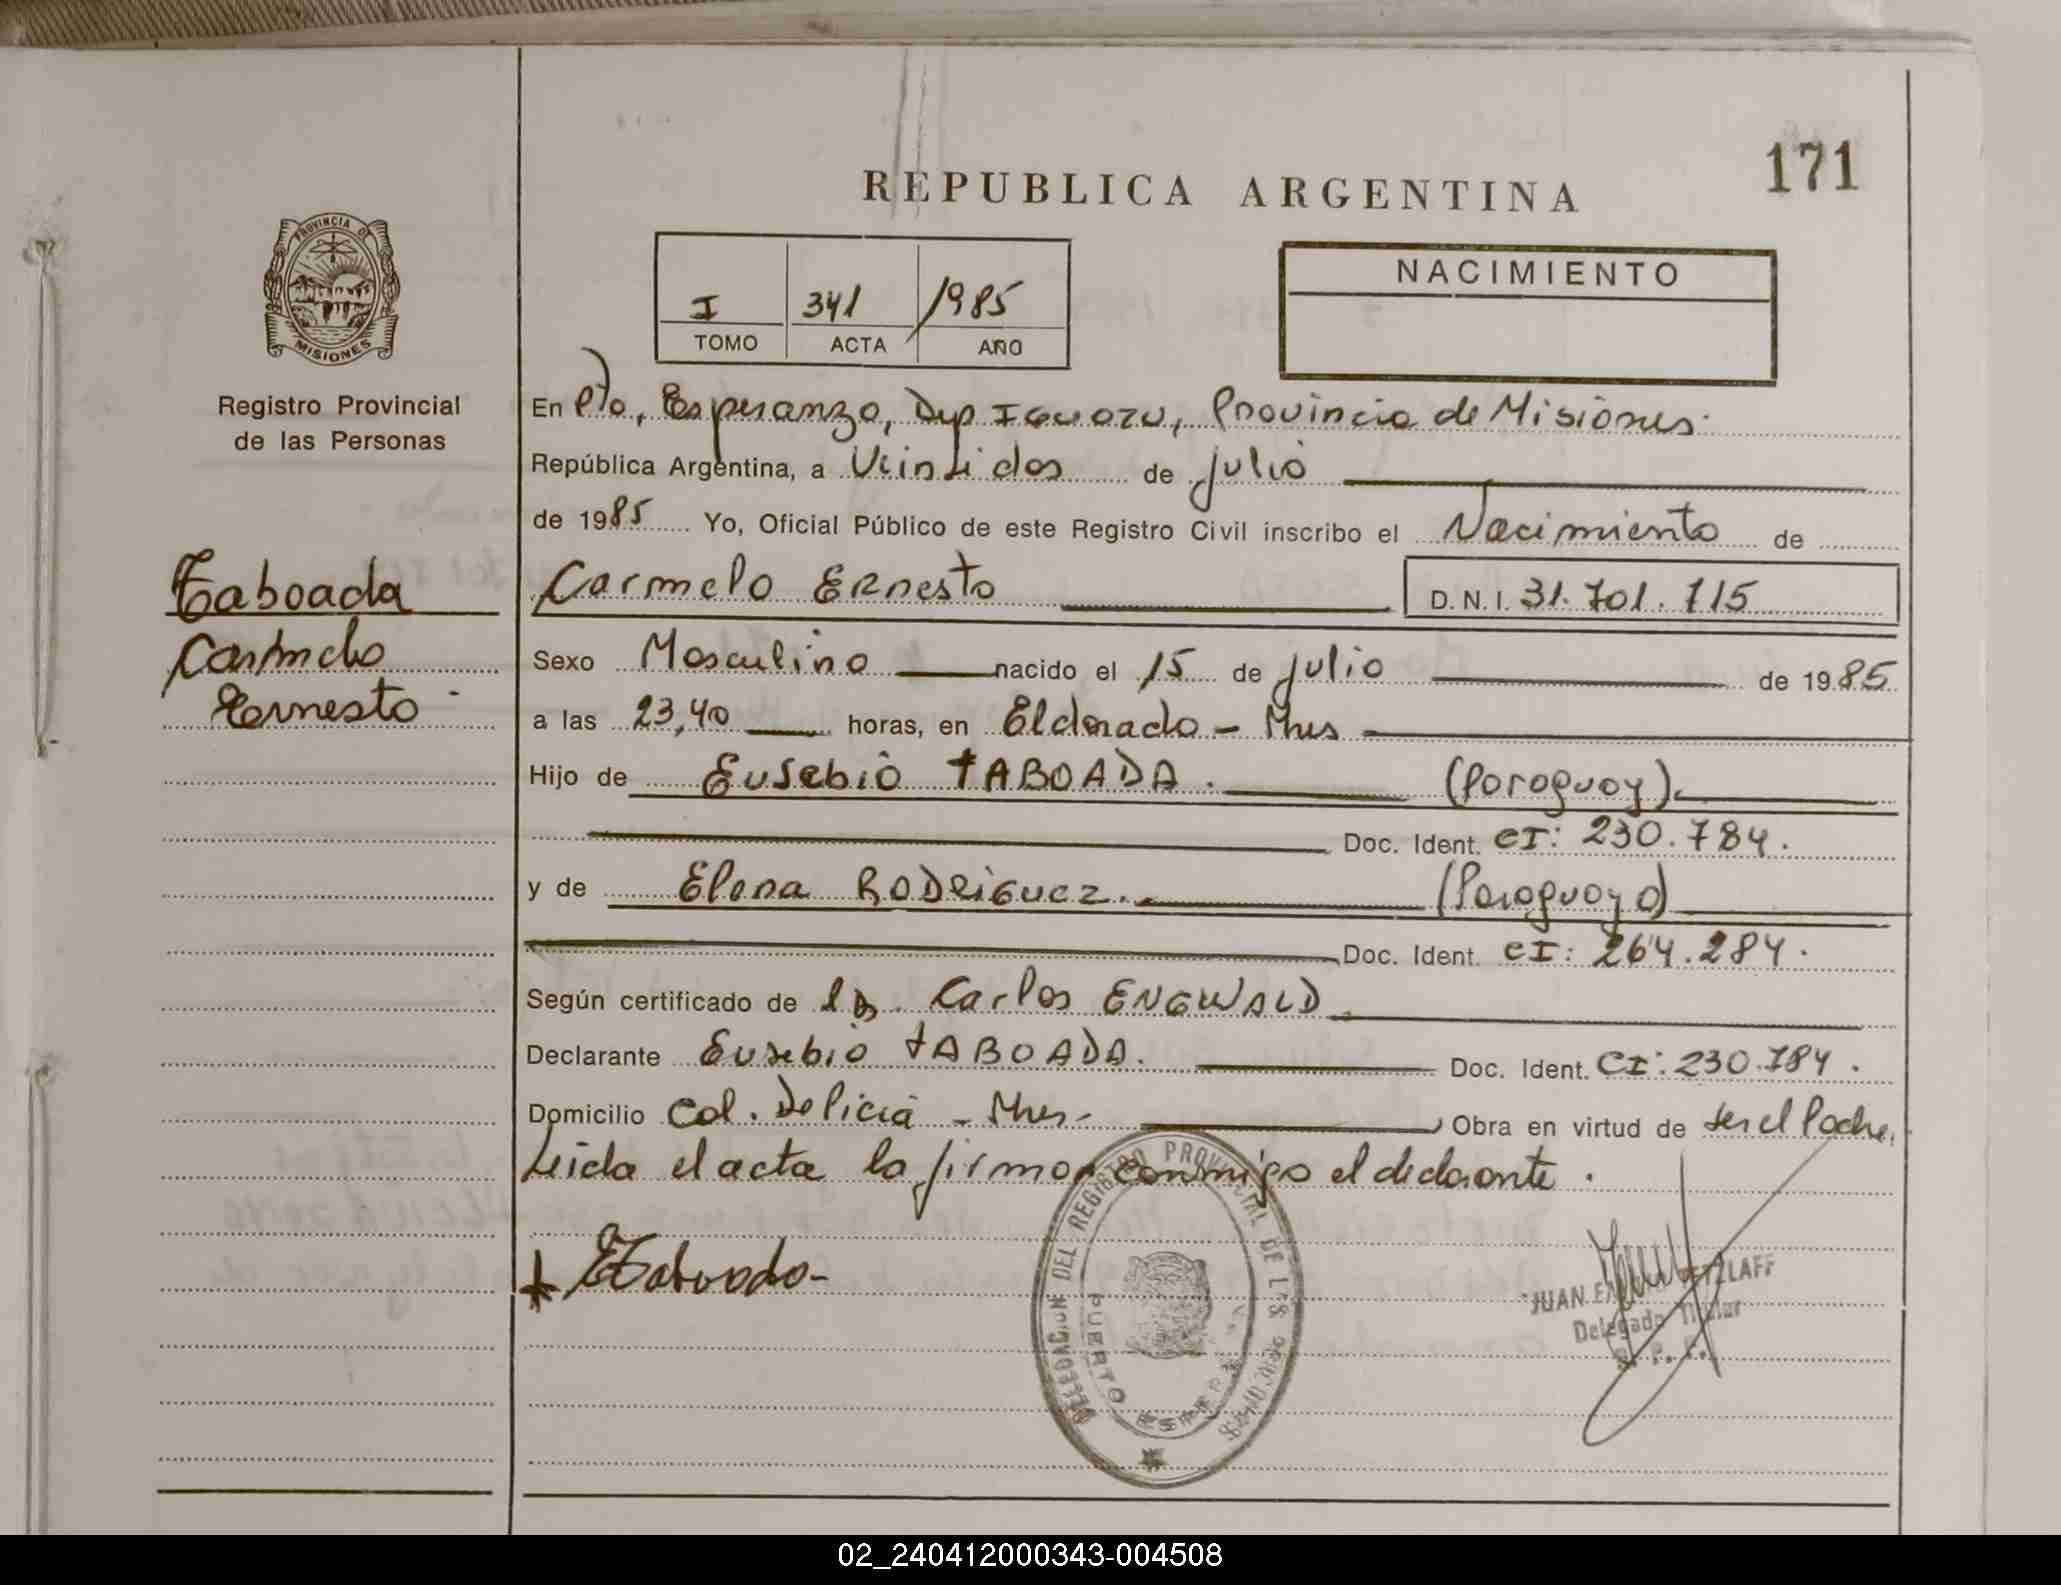 171
REPUBLICA ARGENTINA
PROVINCIA DE
MISIONES
Registro Provincial
de las Personas
I 341 1985
TOMO ACTA AÑO
NACIMIENTO
En Pto, Esperanza, Dep Iguazu, Provincia de Misiones.
República Argentina, a Veintidos de julio
de 1985 Yo, Oficial Público de este Registro Civil inscribo el Nacimiento de
Taboada
Carmelo
Ernesto
Carmelo Ernesto D.N.I. 31.701.715
Sexo Masculino nacido el 15 de julio de 1985
a las 23,40 horas, en Eldorado - Mnes
Hijo de Eusebio TABOADA. (Paraguay).
Doc. Ident. CI: 230.784.
y de Elena RODRIGUEZ. (Paraguaya)
Doc. Ident. CI: 264.284.
Según certificado de Carlos ENGWALD
Declarante Eusebio TABOADA. Doc. Ident. CI: 230.784.
Domicilio Col. Delicia - Mnes- Obra en virtud de ser el Padre.
Leida el acta la firma conmigo el declarante.
ETaboada-
DELEGACION DEL REGISTRO PROVINCIAL DE LAS PERSONAS
PUERTO ESPERANZA
JUAN
Delegado Titular
02_240412000343-004508